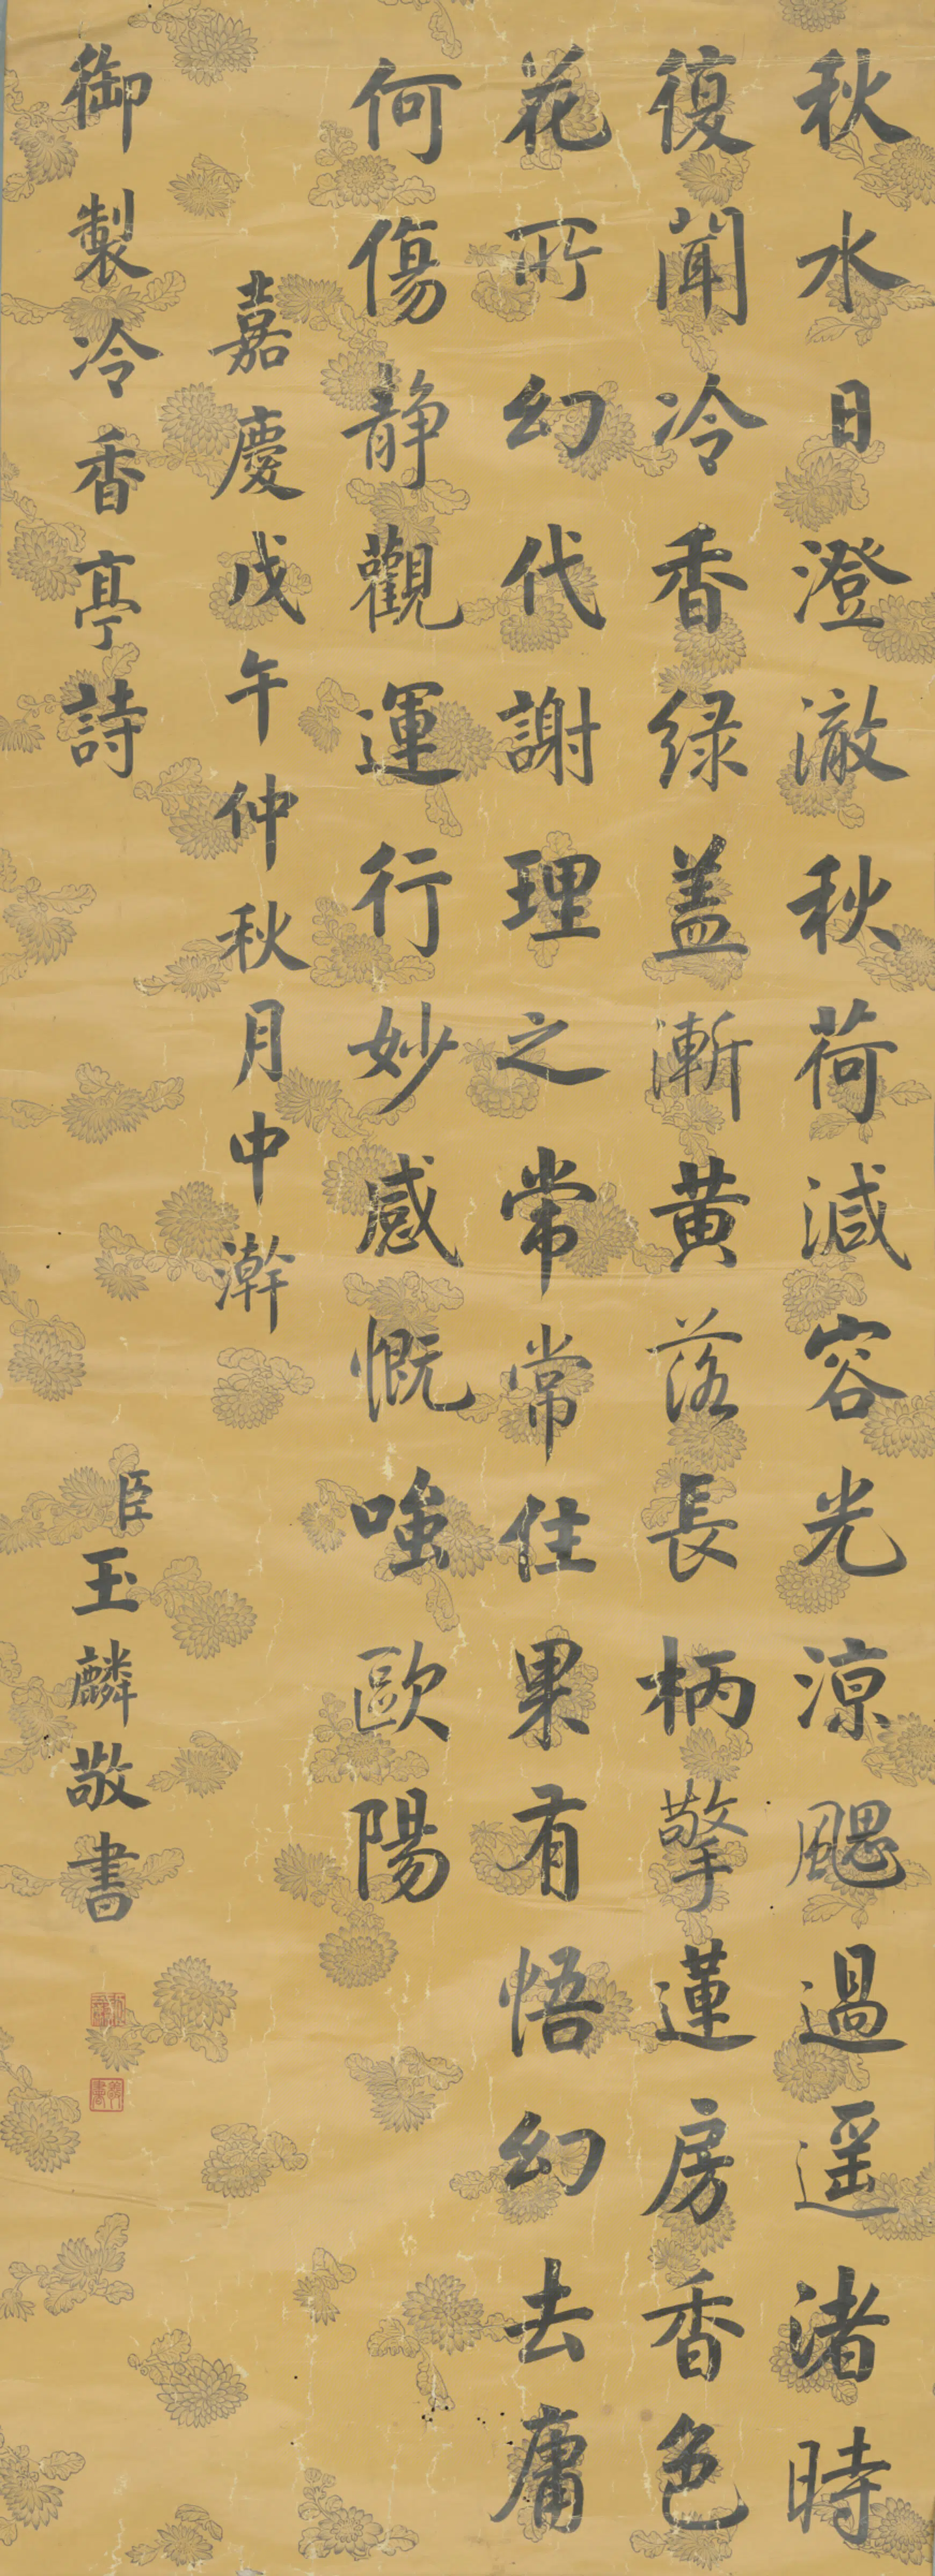 秋水日澄澈秋荷減容光涼颸過遥渚時
復聞冷香緑盖漸黄落長柄擎蓮房香色
花所幻代謝理之常常住果有悟幻去庸
何傷静觀運行妙感慨嗤歐陽
嘉慶戊午仲秋月中澣
御製冷香亭詩
臣玉麟敬書